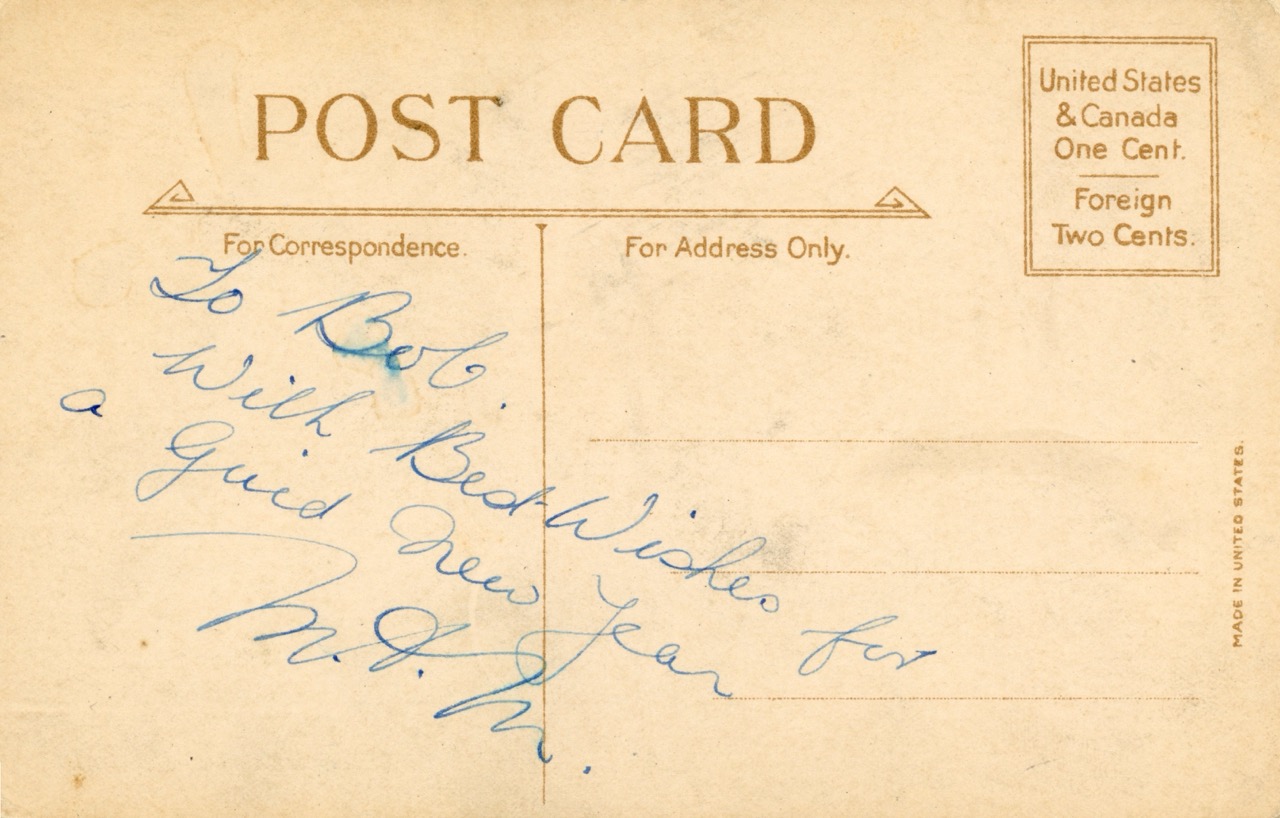 POST CARD
For Correspondence.
For Address Only.
United States
& Canada
One Cent.
Foreign
Two Cents.
To Bob.
With Best Wishes for
a Guid New Year
M. A. M.
MADE IN UNITED STATES.